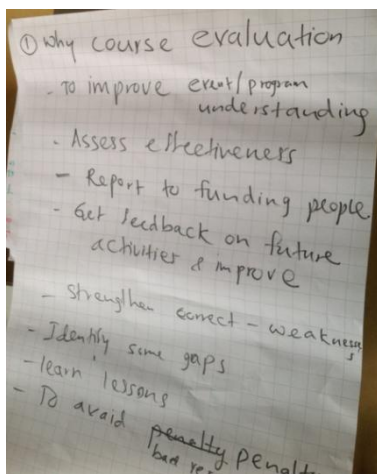 ① Why course evaluation
- To improve event/program
understanding
- Assess effectiveness
- Report to funding people
- Get feedback on future
activities & improve
- Strengthen correct - weakness
- Identify some gaps
- learn lessons
- To avaid penalty
bad